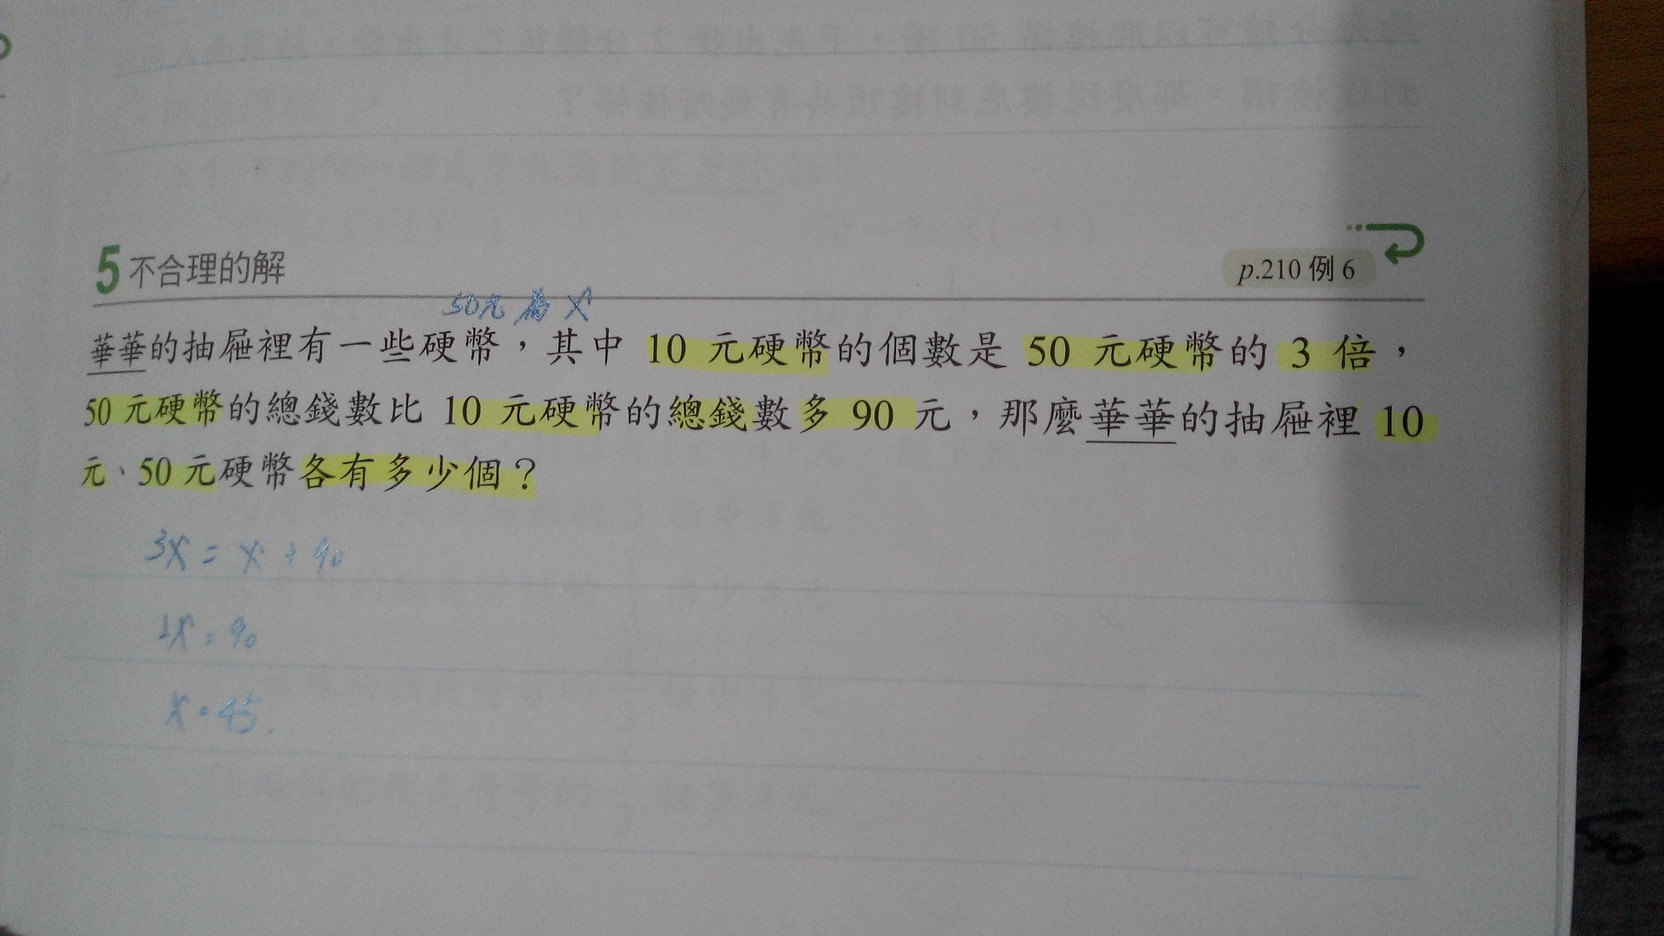 5 不合理的解
p.210 例 6
50元 為 X
華華的抽屜裡有一些硬幣，其中 10 元硬幣的個數是 50 元硬幣的 3 倍，
50 元硬幣的總錢數比 10 元硬幣的總錢數多 90 元，那麼華華的抽屜裡 10
元、50 元硬幣各有多少個？
3X = X + 90
2X = 90
X = 45.